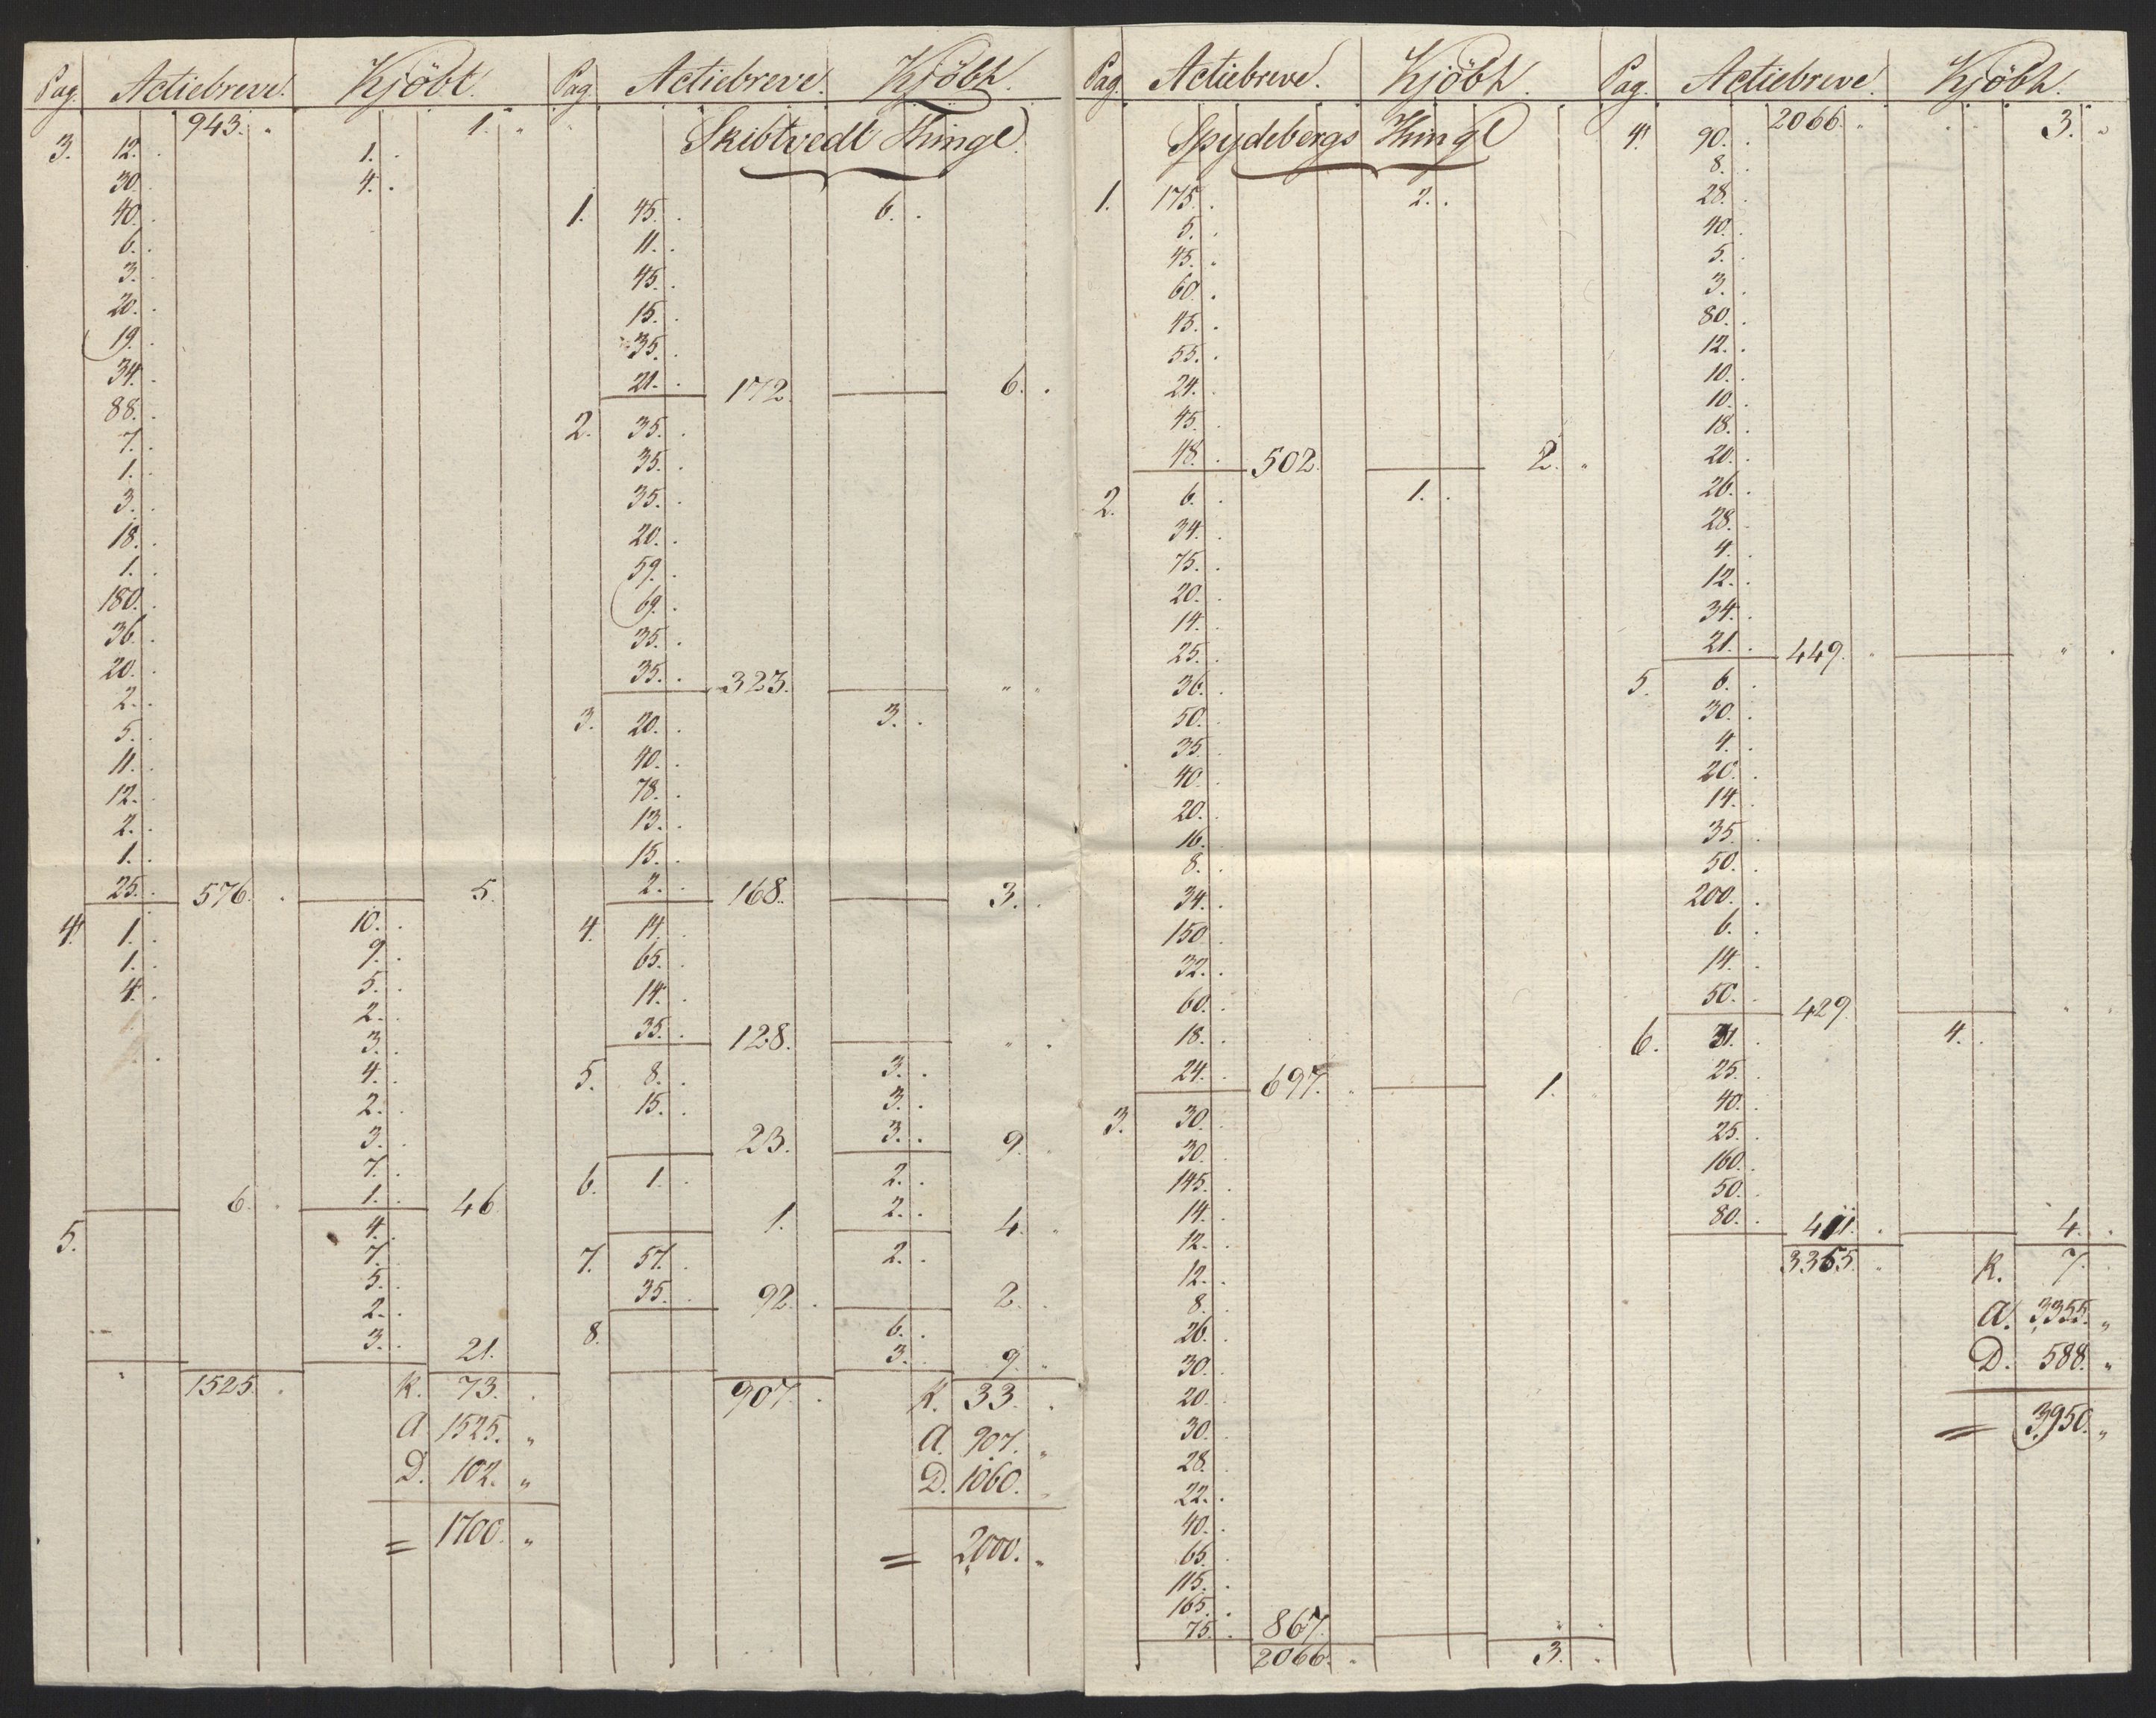 Pag. Actiebreve. Kjöbt.
943. 1.
3. 12. 1.
30. 4.
40.
6.
3.
20.
19.
34.
88.
7.
1.
3.
18.
1.
180.
36.
20.
2.
5.
11.
12.
2.
1.
25. 576. 5.
4. 1. 10.
1. 9.
4. 5.
2.
3.
4.
2.
3.
7.
6. 1. 46
5. 4.
7.
5.
2.
3. 21.
1525. K. 73.
A 1525. "
D. 102. "
= 1700. "
Pag. Actiebreve. Kjöbt.
Skibtvedt Thingl.
1. 45. 6.
11.
45.
15.
35.
21. 172. 6.
2. 35.
35.
35.
20.
59.
69.
35.
35. 323. " "
3. 20. 3.
40.
78.
13.
15.
2. 168. 3.
4. 14.
65.
14.
35. 128. "
5. 8. 3.
15. 3.
23. 3. 9.
6. 1. 2.
1. 2. 4.
7. 57. 2.
35. 92. 2.
8. 6.
3. 9.
907. K. 33.
A. 907. "
D. 1060. "
= 2000. "
Pag. Actiebreve. Kjöbt.
Spydebergs Thingl
1. 175. 2.
5.
45.
60.
45.
55.
24.
45.
48. 502. 2. "
2. 6. 1.
34.
75.
20.
14.
25.
36.
50.
35.
40.
20.
16.
8.
34.
150.
32.
60.
18.
24. 697. 1.
3. 30.
30.
145.
14.
12.
12.
8.
26.
30.
20.
30.
28.
22.
40.
65.
115.
165.
75. 867.
2066. 3.
Pag. Actiebreve. Kjöbt.
2066. 3. "
4. 90.
8.
28.
40.
5.
3.
80.
12.
10.
10.
18.
20.
26.
28.
4.
12.
34.
21. 449. "
5. 6.
30.
4.
20.
14.
35.
50.
200.
6.
14.
50. 429. "
6. 31. 4.
25.
40.
25.
160.
50.
80. 411. 4.
3355. K. 7.
A. 3355. "
D. 588. "
= 3950. "